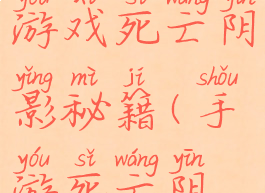 yóu xì sǐ wáng yīn
游戏死亡阴
yǐng mì jí shǒu
影秘籍(手
yóu sǐ wáng yīn
游死亡阴